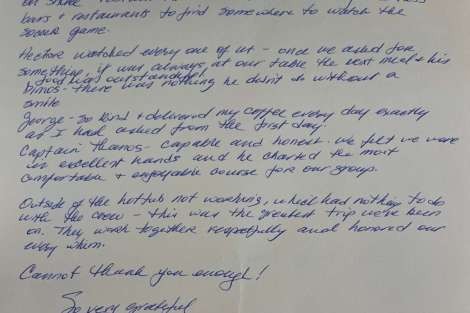 bars & restaurants to find somewhere to watch the
soccer game.
Hectore watched every one of us - once we asked for
something, it was always at our table the next meal & his
food was outstanding!
Dimos - there was nothing he didn't do without a
smile
George - so kind & delivered my coffee every day exactly
as I had asked from the first day.
Captain Thanos - capable and honest. We felt we were
in excellent hands and he charted the most
comfortable & enjoyable course for our group.
Outside of the hottub not working, which had nothing to do
with the crew - this was the greatest trip we've been
on. They work together respectfully and honored our
every whim.
Cannot thank you enough!
So very grateful